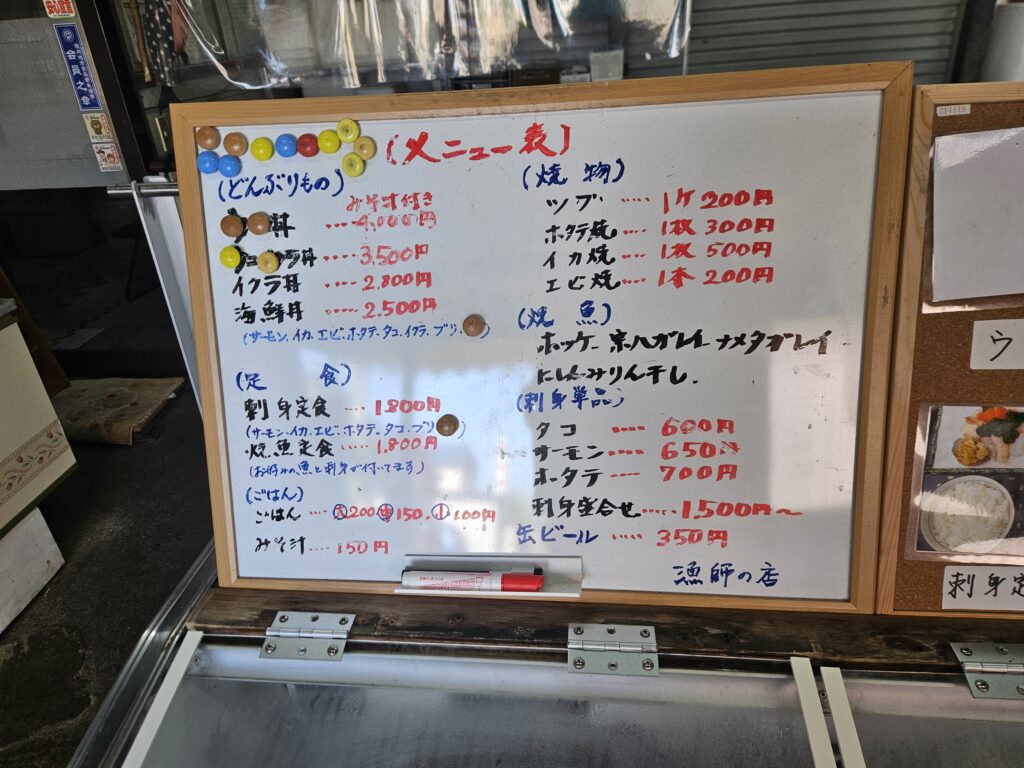 (メニュー表)
(どんぶりもの)
みそ汁付き
丼 ・・・・ 4,000円
丼 ・・・・ 3,500円
イクラ丼 ・・・・ 2,800円
海鮮丼 ・・・・ 2,500円
(サーモン、イカ、エビ、ホタテ、タコ、イクラ、ブリ、
(定 食)
刺身定食 ・・・・ 1,800円
(サーモン、イカ、エビ、ホタテ、タコ、ブリ
焼魚定食 ・・・・ 1,800円
(お好みの魚と刺身が付いてます)
(ごはん)
ごはん ・・・ 大200 中150 小100円
みそ汁 ・・・・ 150円
(焼 物)
ツブ ・・・・ 1ケ 200円
ホタテ焼 ・・・・ 1枚 300円
イカ焼 ・・・・ 1枚 500円
エビ焼 ・・・・ 1本 200円
(焼 魚)
ホッケ 宗八ガレイ ナメタガレイ
にしん みりん干し、
(刺身単品)
タコ ・・・・ 600円
サーモン ・・・・ 650円
ホタテ ・・・・ 700円
刺身盛合せ ・・・・ 1,500円〜
缶ビール ・・・・・ 350円
漁師の店
ウ
刺身定